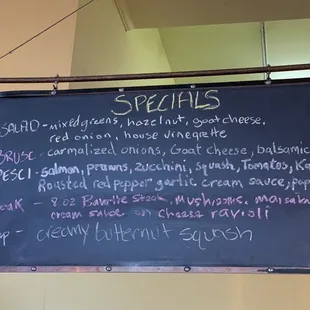 SPECIALS
SALAD - mixed greens, hazelnut, goat cheese,
red onion, house vinegrette
BRUSC. carmalized onions, Goat cheese, balsamic
PESCI - salmon, prawns, zucchini, squash, Tomatos, Ka
Roasted red pepper garlic cream sauce, pap
eaK - 8 oz Bavette Steak, mushrooms, marsala
cream sauce on cheese ravioli
up - creamy butternut squash